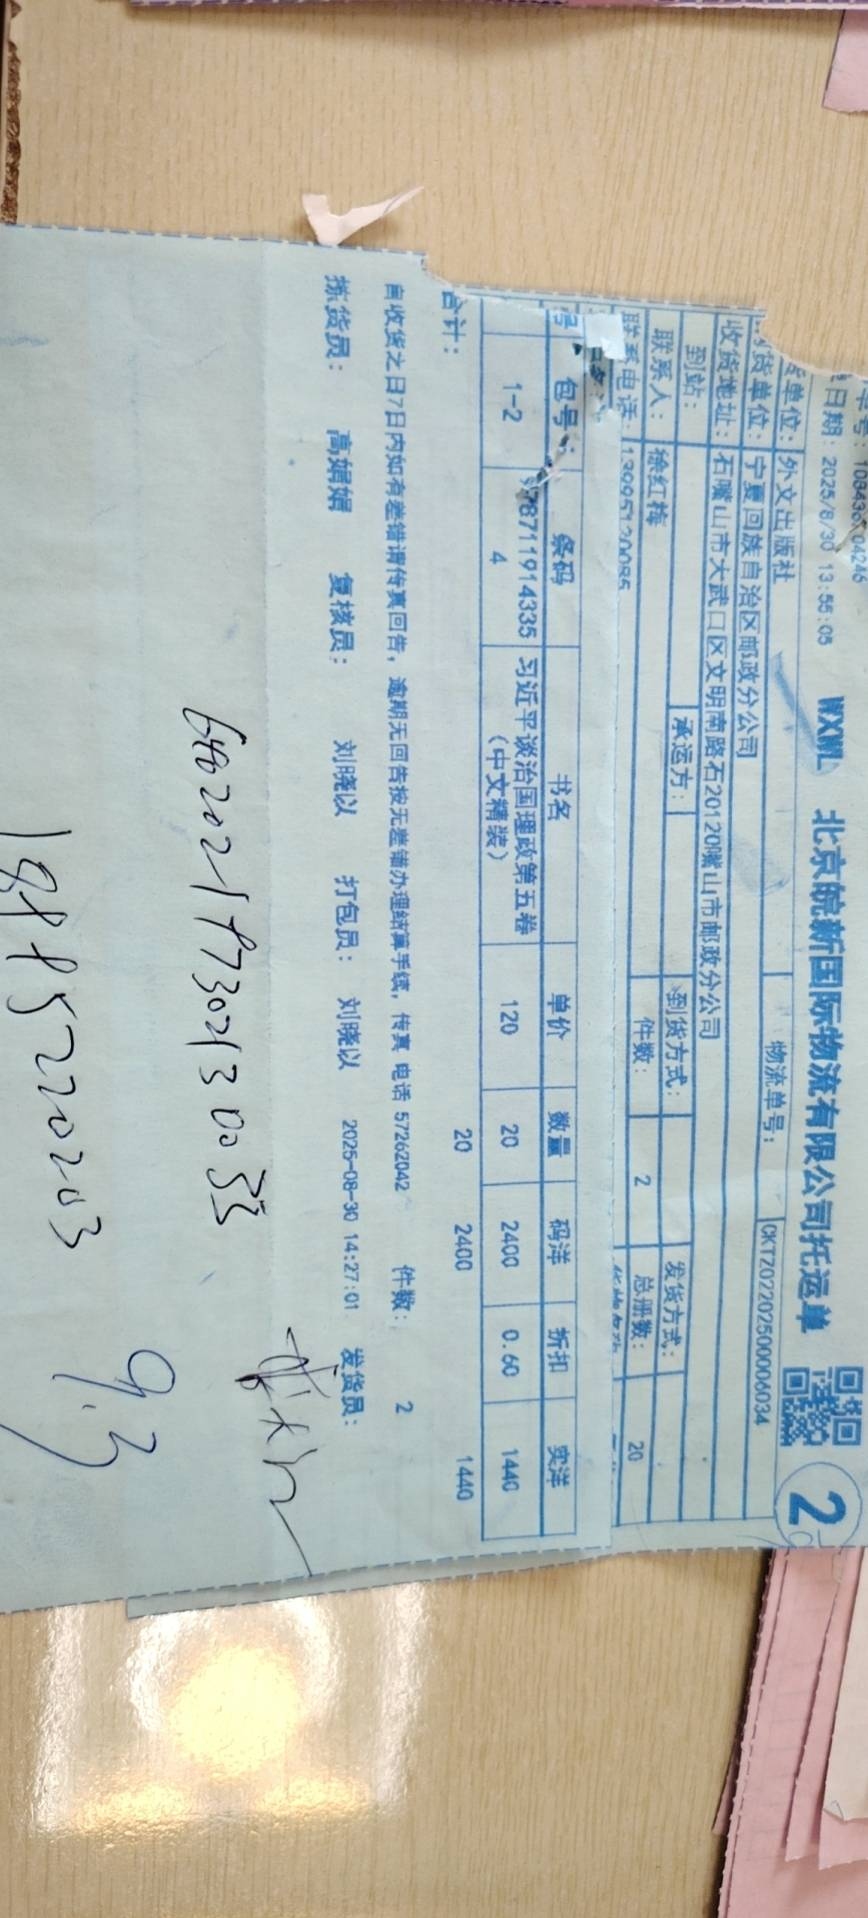 WXWL 北京皖新国际物流有限公司托运单
2
日期: 2025/8/30 13:55:05
物流单号: CKTZ02202500006034
货单位: 外文出版社
货单位: 宁夏回族自治区邮政分公司
收货地址: 石嘴山市大武口区文明南路石20120嘴山市邮政分公司
到站: 承运方: 到货方式: 发货方式:
联系人: 徐红梅 件数: 2 总册数: 20
联系电话:
号 包号 条码 书名 单价 数量 码洋 折扣 实洋
1-2 9787119143354 习近平谈治国理政第五卷(中文精装) 120 20 2400 0.60 1440
合计: 20 2400 1440
自收货之日7日内如有差错请传真回告，逾期无回告按无差错办理结算手续，传真 电话 57262042 件数: 2
拣货员: 高娟娟 复核员: 刘晓以 打包员: 刘晓以 2025-08-30 14:27:01 发货员:
9.3